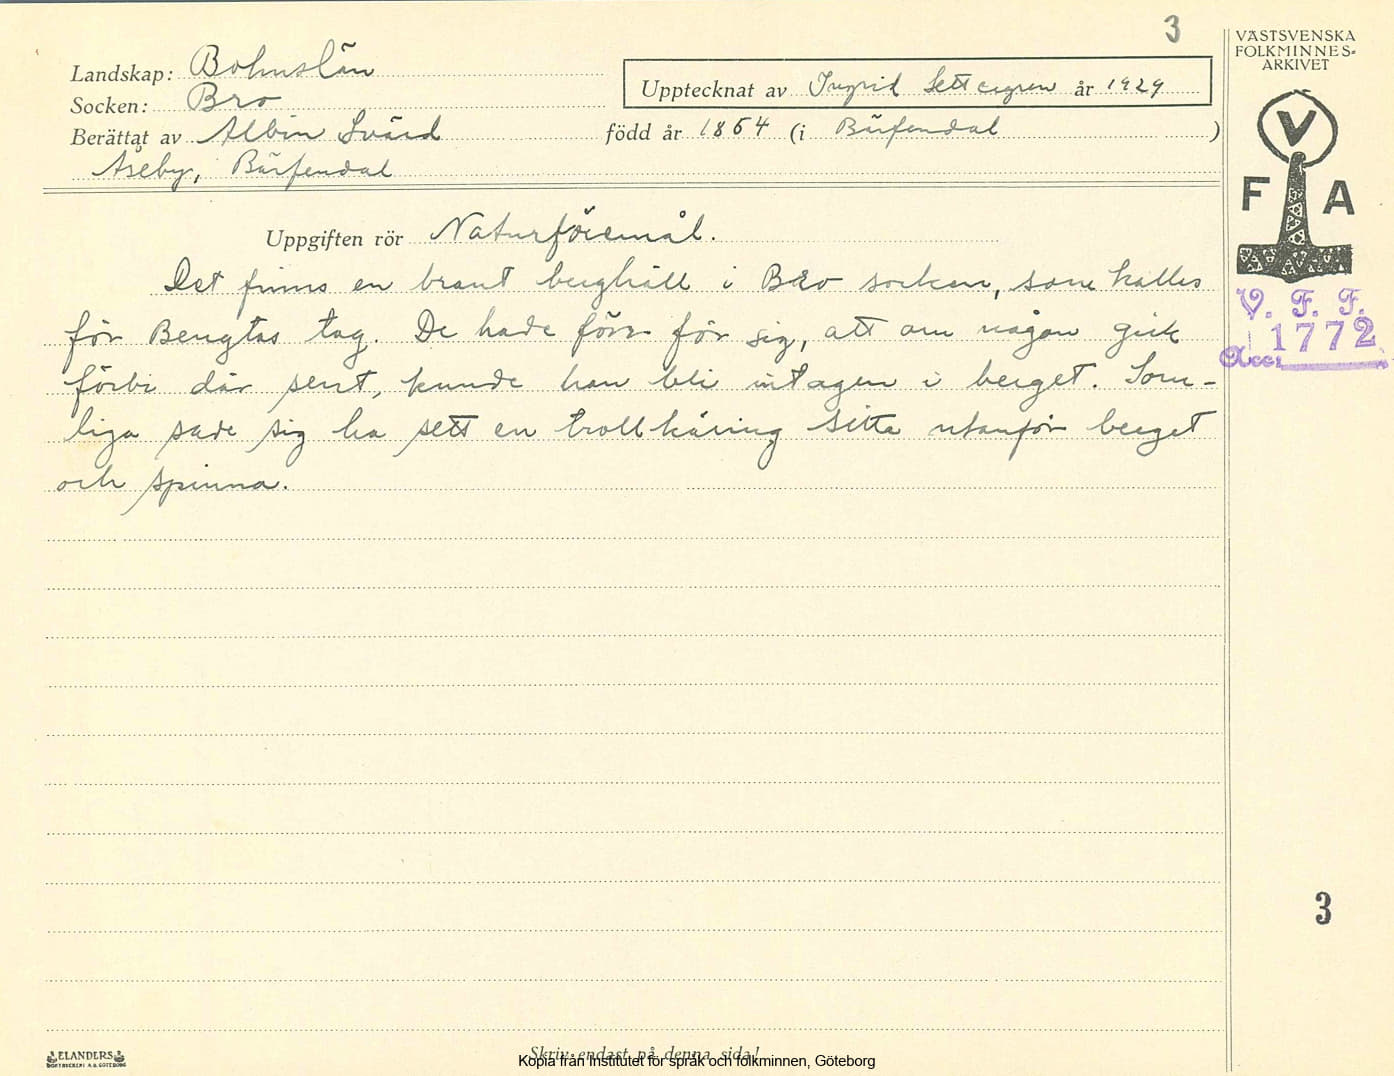 3
VÄSTSVENSKA
FOLKMINNES-
ARKIVET
Landskap: Bohuslän
Upptecknat av Ingrid Settergren år 1929
Socken: Bro
Berättat av Albin Svärd född år 1854 (i Bärfendal)
Åseby, Bärfendal
V
F A
Uppgiften rör Naturföremål.
Det finns en brant berghäll i Bro socken, som kallas
för Bengtas tag. De hade förr för sig, att om någon gick
förbi där sent, kunde han bli intagen i berget. Som-
liga sade sig ha sett en trollkäring sitta utanför berget
och spinna.
V. F. F.
Acc. 1772
3
ELANDERS
BOKTRYCKERI A.B. GÖTEBORG
Skriv endast på denna sida!
Kopia från Institutet för språk och folkminnen, Göteborg